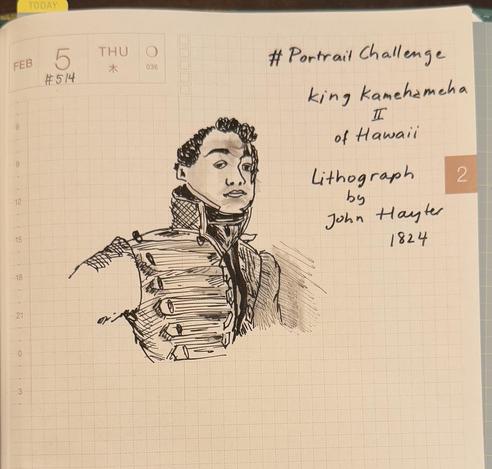 TODAY
FEB 5 THU
木
036
#514
# Portrail Challenge
king Kamehameha
II
of Hawaii
Lithograph
by
John Hayter
1824
2
9
12
15
18
21
0
3